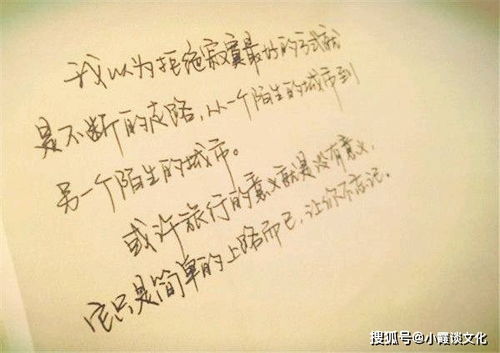 我以为拒绝寂寞最好的方式就
是不断的走路,从一个陌生的城市到
另一个陌生的城市。
或许旅行的意义就是没有意义,
它只是简单的上路而已,让你不忘记。
搜狐号@小霞谈文化